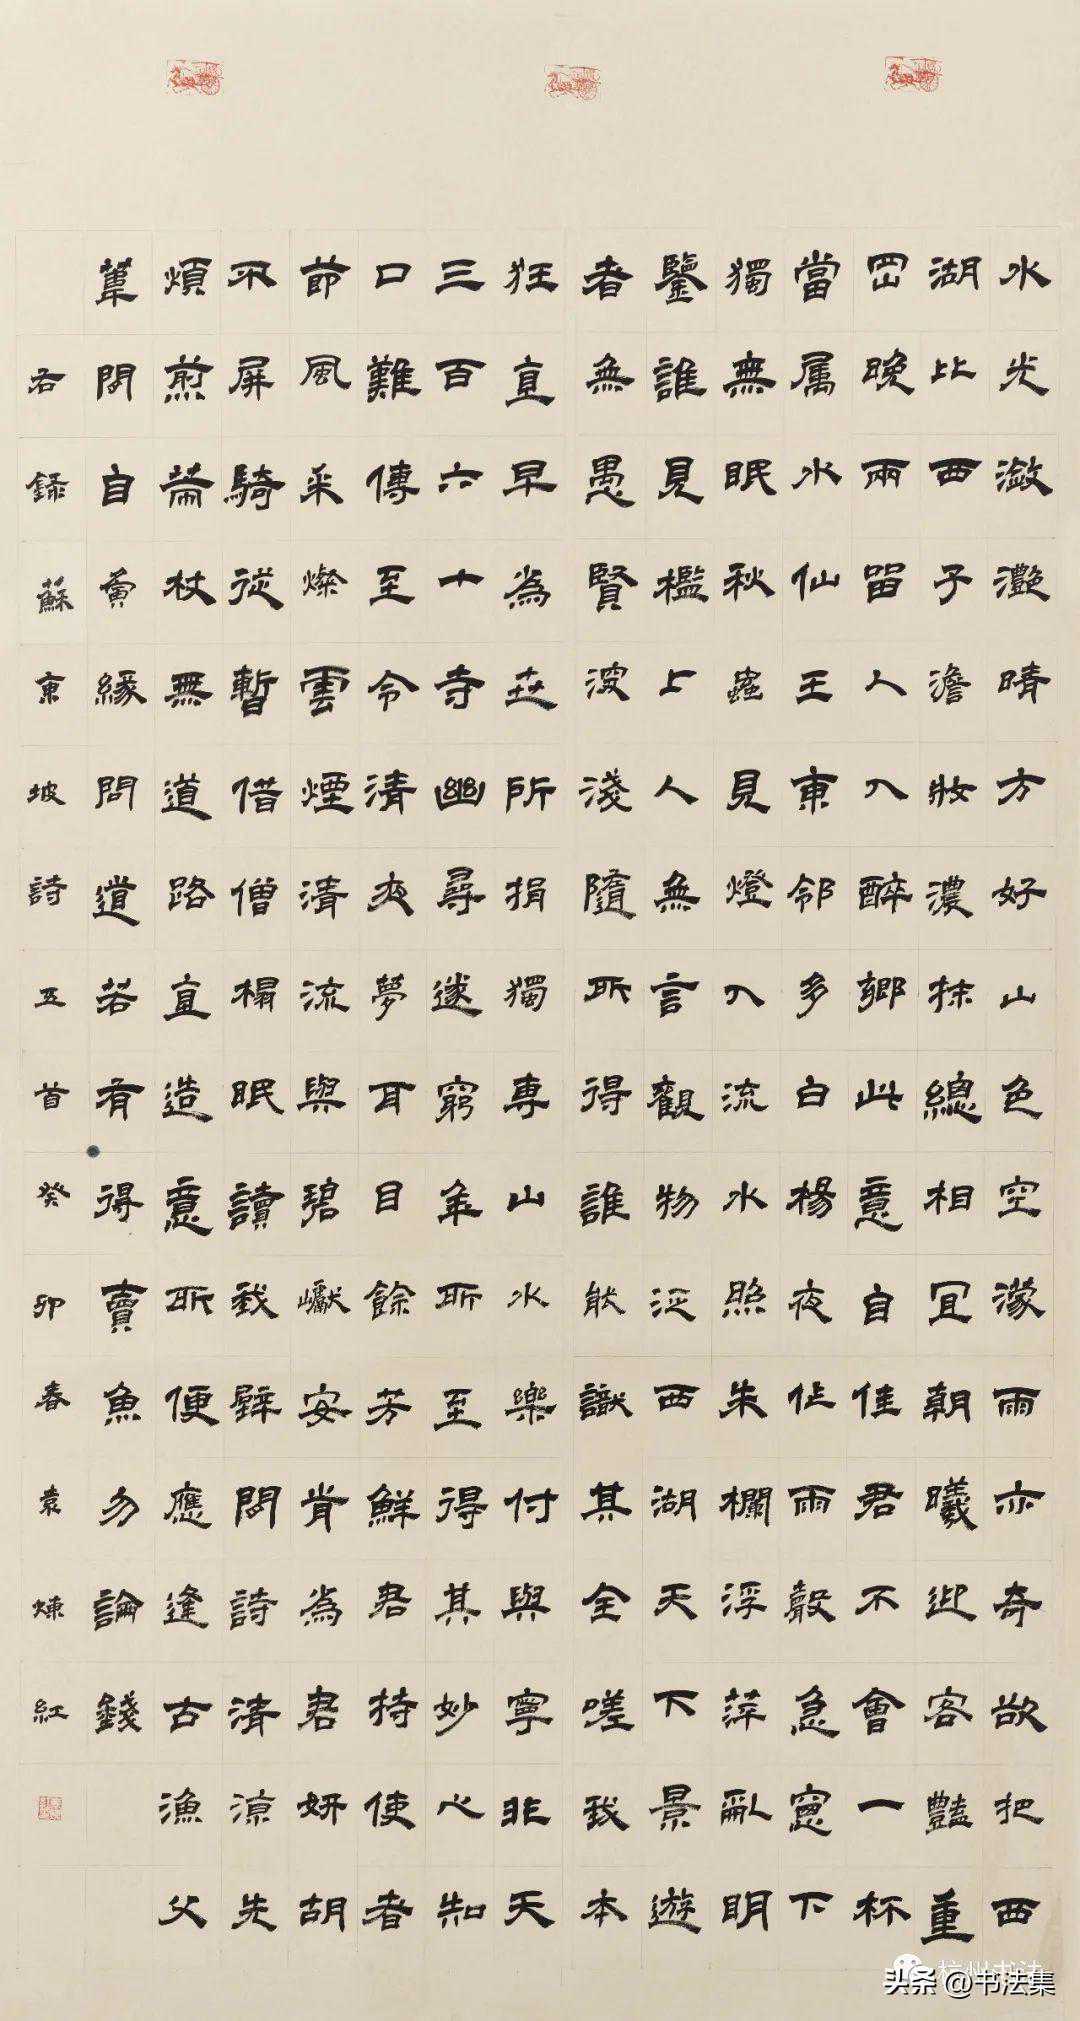 水光瀲灩晴方好山色空濛雨亦奇欲把西
湖比西子澹妝濃抹總相宜朝曦迎客豔重
岡晚雨留人入醉鄉此意自佳君不會一杯
當属水仙王東邻多白楊夜作雨聲急窗下
獨無眠秋蟲見燈入流水照朱欄浮萍亂明
鑒誰見檻上人無言觀物泛西湖天下景遊
者無愚賢深淺隨所得誰能識其全嗟我本
狂直早為世所捐獨專山水樂付與寧非天
三百六十寺幽尋遂窮年所至得其妙心知
口難傳至今清夜夢耳目餘芳鮮君持使者
節風采爍雲煙清流與碧巘安肯為君妍胡
不屏騎從暫借僧榻眠讀我壁間詩清涼先
煩煎策杖無道路直造意所便應逢古漁父
葦間自夤緣問道若有得賣魚勿論錢
右錄蘇東坡詩五首癸卯春袁煉紅
杭州书法
头条 @书法集